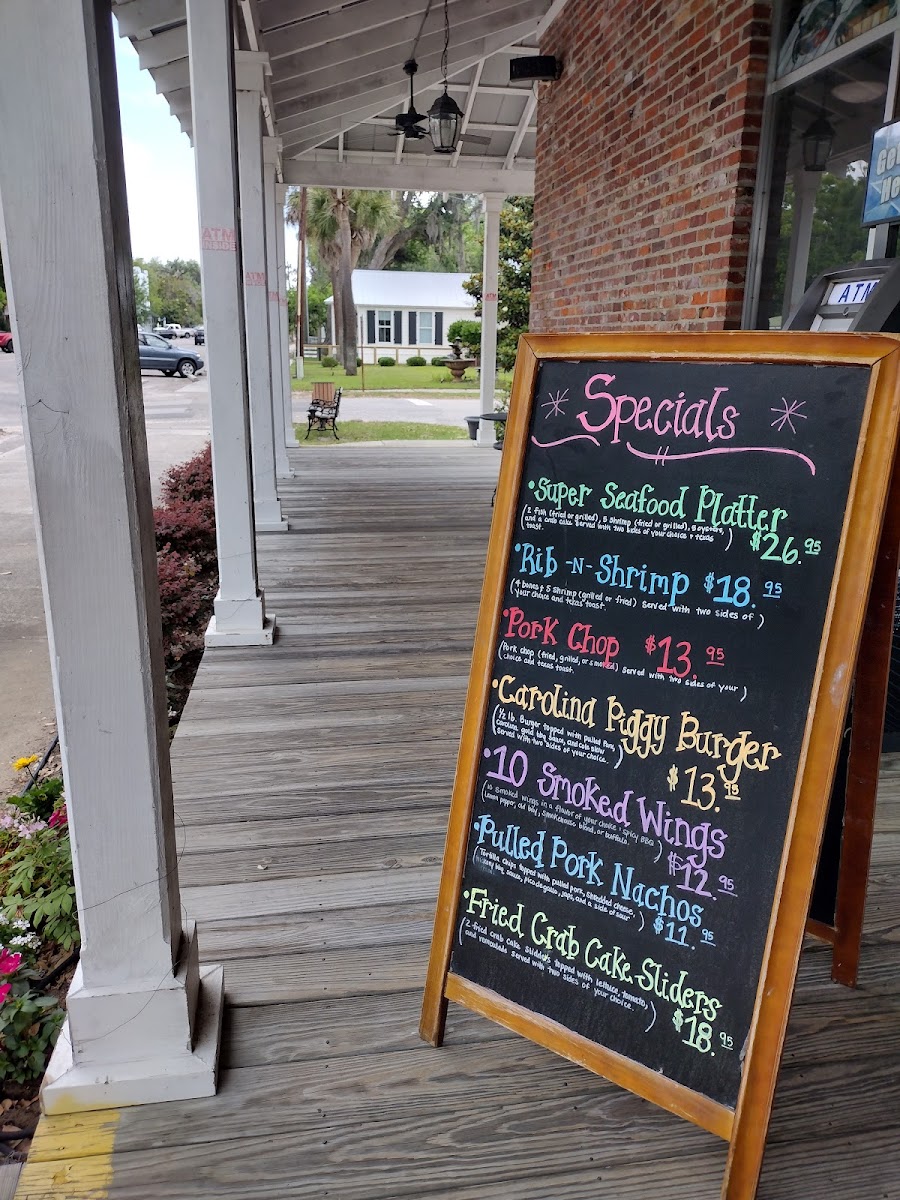 ATM
INSIDE
ATM
Specials
• Super Seafood Platter
(2 fish (fried or grilled), 5 shrimp (fried or grilled), 5 oysters,
and a crab cake served with two sides of your choice + texas
toast. )
$26.95
• Rib -N- Shrimp $18.95
(4 bones + 5 shrimp (grilled or fried) served with two sides of
your choice and texas toast. )
• Pork Chop $13.95
(Pork chop (fried, grilled, or smoked) served with two sides of your
choice and texas toast. )
• Carolina Piggy Burger
(1/2 lb. Burger topped with pulled Pork,
Carolina gold bbq sauce, and cole slaw
served with two sides of your choice. )
$13.95
• 10 Smoked Wings
(10 smoked wings in a flavor of your choice : spicy BBQ
lemon pepper, old bay, smokehouse blend, or buffalo. )
$12.95
• Pulled Pork Nachos
(Tortilla chips topped with pulled pork, shredded cheese,
bbq sauce, pico de gallo, japs, and a side of sour )
$11.95
• Fried Crab Cake Sliders
(2 fried crab cake sliders topped with lettuce, tomato,
and remoulade served with two sides of your choice. )
$18.95